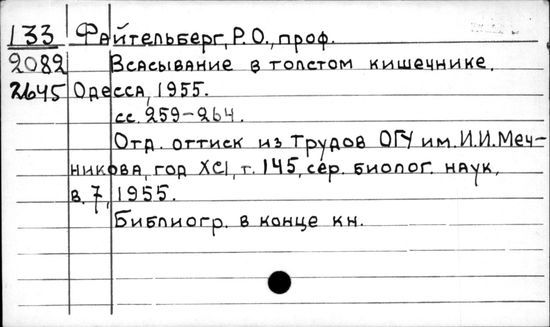 133 Файтельберг, Р.О., проф.
2082 Всасывание в толстом кишечнике.
2645 Одесса, 1955.
сс. 259-264.
Отд. оттиск из Трудов ОГУ им. И.И. Меч-
никова, год XCI, т. 145, сер. биолог. наук,
в. 7, 1955.
Библиогр. в конце кн.